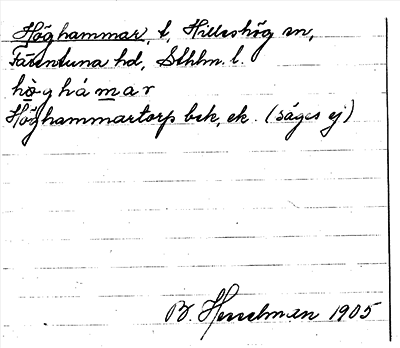 Höghammar, t, Hilleshög sn,
Färentuna hd, Sthlm. l.
hòghámar
Höghammartorp bek, ek. (säges ej)
B. Hesselman 1905